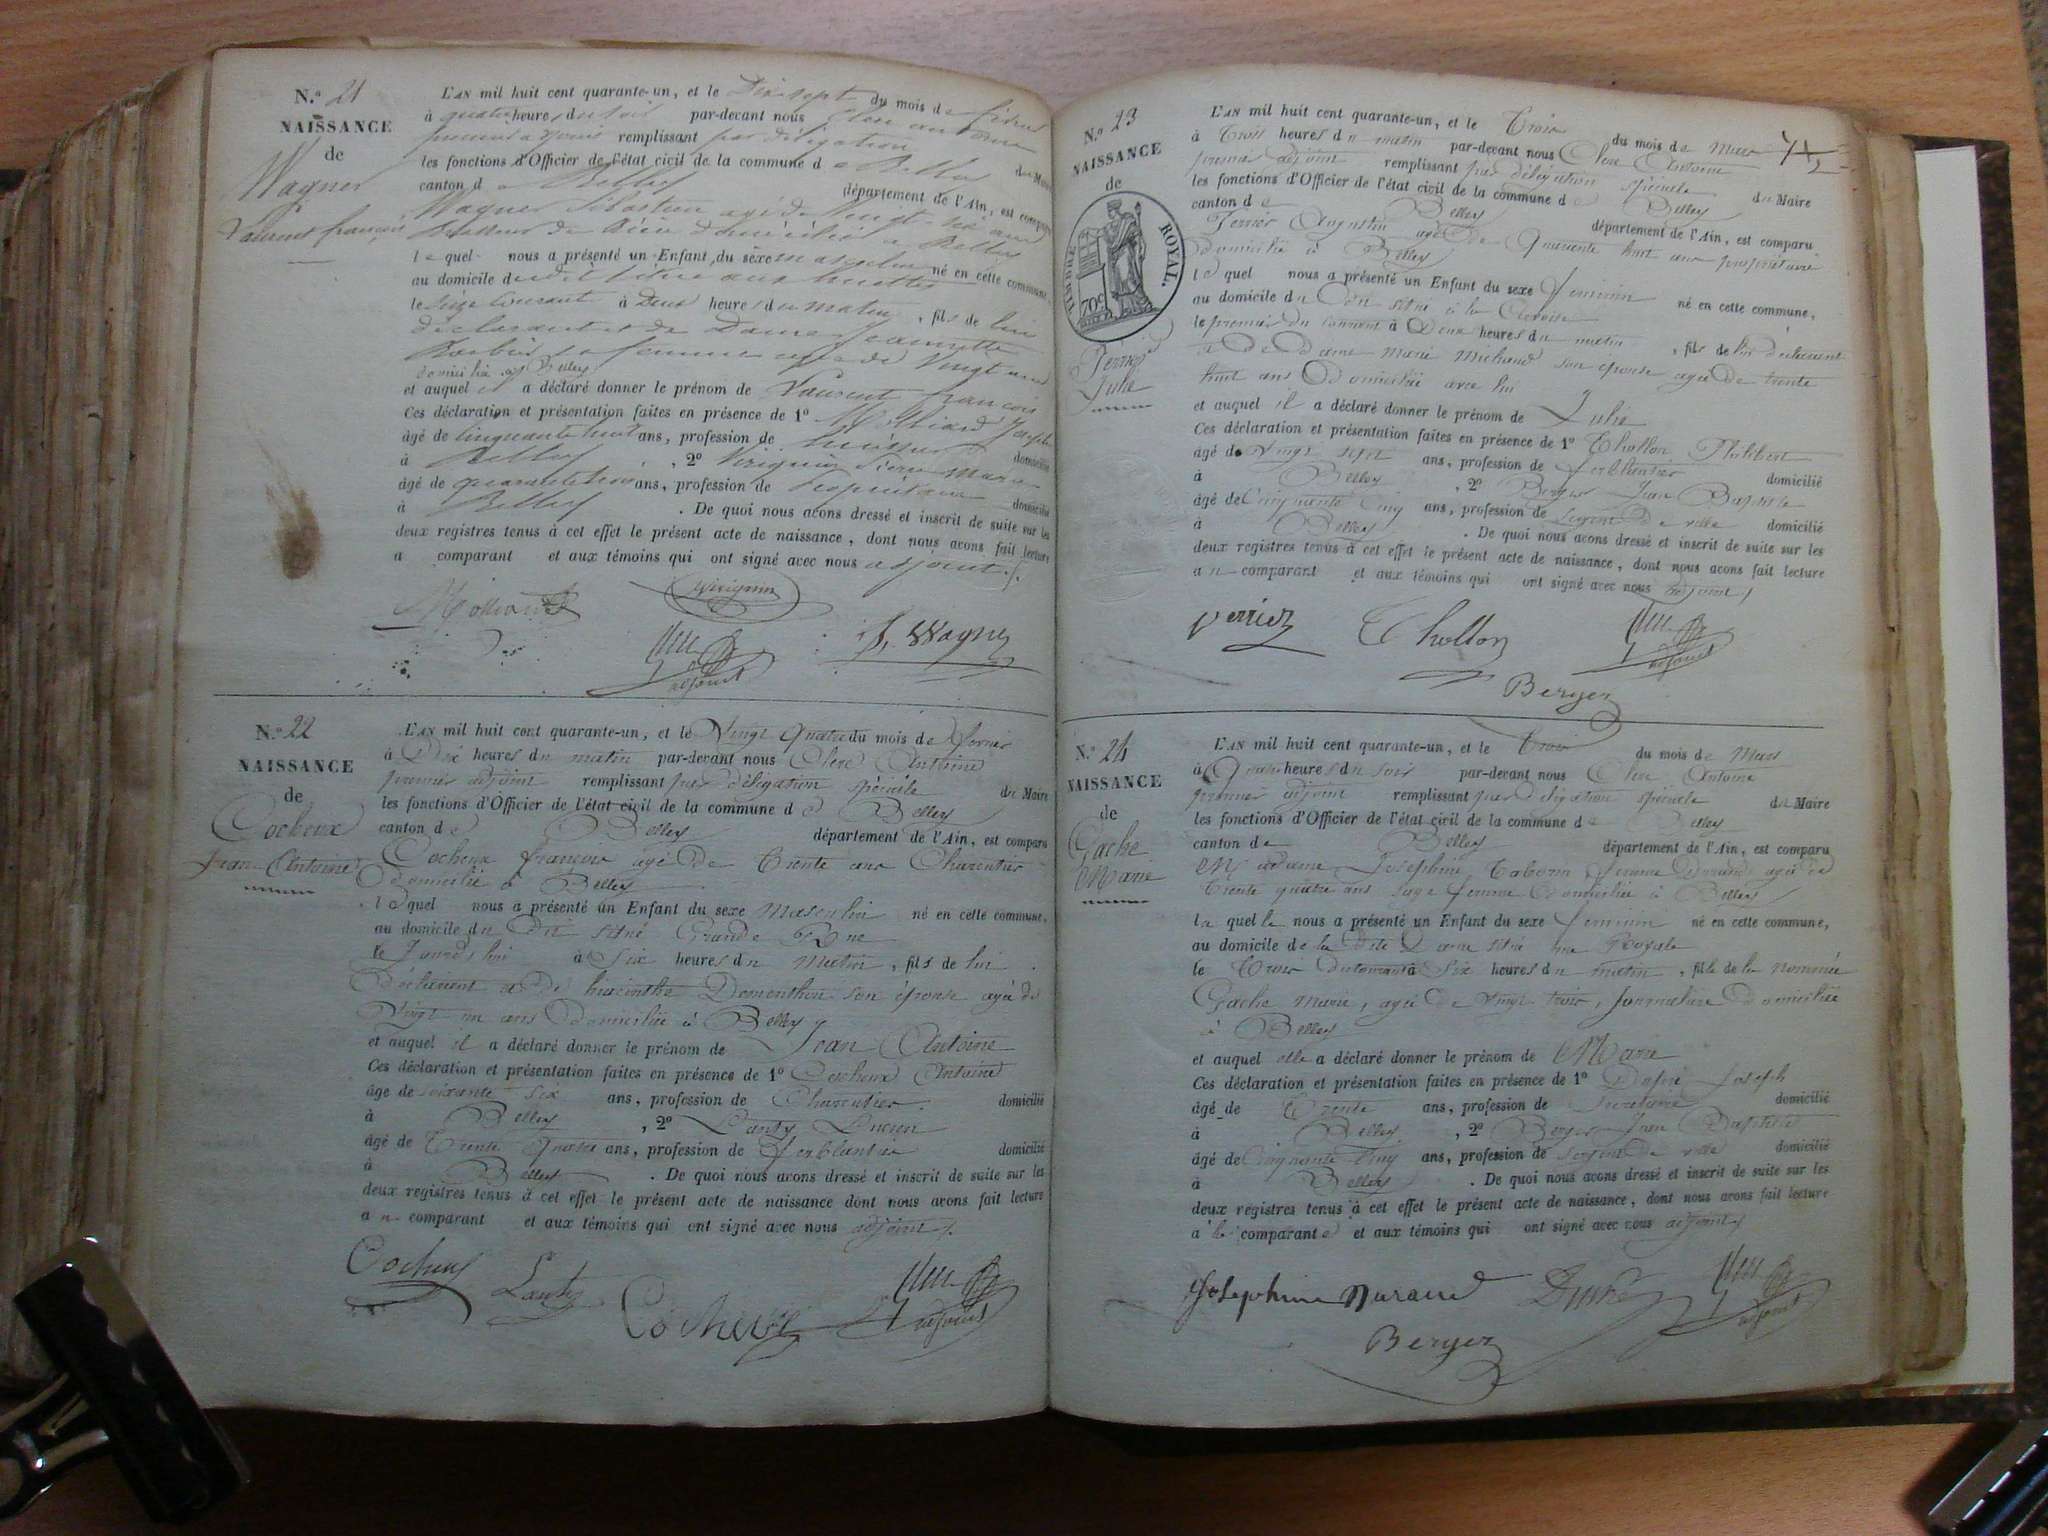 N.º 21
NAISSANCE
de
Wagner
Laurent françois
L'AN mil huit cent quarante-un, et le Dix sept du mois de février
à quatre heures du soir par-devant nous Clerc antoine
premier adjoint remplissant par délégation
les fonctions d'Officier de l'état civil de la commune de Belley du Maire
canton de Belley département de l'Ain, est comparu
Wagner Sébastien agé de vingt-six ans
Brasseur de Bière domicilié à Belley
lequel nous a présenté un Enfant du sexe masculin né en cette commune,
au domicile du dit situé aux
le seize Courant à Deux heures du matin, fils de lui
déclarant et de Dame Jeannette
sa femme agée de Vingt
domiciliée à Belley
et auquel il a déclaré donner le prénom de Laurent françois
Ces déclaration et présentation faites en présence de 1º Molliard Joseph
âgé de Cinquante huit ans, profession de domicilié
à Belley, 2º Virignin Pierre Marie
âgé de quarante trois ans, profession de propriétaire domicilié
à Belley. De quoi nous avons dressé et inscrit de suite sur les
deux registres tenus à cet effet le présent acte de naissance, dont nous avons fait lecture
a comparant et aux témoins qui ont signé avec nous adjoint.
Molliard
Virignin
adjoint
S. Wagner
N.º 22
NAISSANCE
de
Cocheux
Jean Antoine
L'AN mil huit cent quarante-un, et le Vingt quatre du mois de février
à Dix heures du matin par-devant nous Clerc Antoine
premier adjoint remplissant par délégation spéciale du Maire
les fonctions d'Officier de l'état civil de la commune de Belley
canton de Belley département de l'Ain, est comparu
Cocheux françois agé de Trente ans Charpentier
domicilié à Belley
lequel nous a présenté un Enfant du sexe Masculin né en cette commune,
au domicile du Dit situé Grande Rue
le Jourd'hui à Six heures du Matin, fils de lui
Déclarant et de hiacinthe Domenthon son épouse agée de
Vingt un ans domiciliée à Belley
et auquel il a déclaré donner le prénom de Jean Antoine
Ces déclaration et présentation faites en présence de 1º Cocheux Antoine
âgé de soixante six ans, profession de Charpentier domicilié
à Belley, 2º Lanty
âgé de Trente Quatre ans, profession de ferblantier domicilié
à Belley. De quoi nous avons dressé et inscrit de suite sur les
deux registres tenus à cet effet le présent acte de naissance dont nous avons fait lecture
au comparant et aux témoins qui ont signé avec nous adjoint.
Cocheux
Lanty
Cocheux
adjoint
N.º 23
NAISSANCE
de
TIMBRE ROYAL.
70c
Perrier
Julie
L'AN mil huit cent quarante-un, et le Trois du mois de Mars
à Trois heures du matin par-devant nous Clerc Antoine
premier adjoint remplissant par délégation spéciale du Maire
les fonctions d'Officier de l'état civil de la commune de Belley
canton de Belley département de l'Ain, est comparu
Perrier Augustin agé de Quarante huit ans propriétaire
domicilié à Belley
lequel nous a présenté un Enfant du sexe féminin né en cette commune,
au domicile du Dit situé à la
le premier du courant à Deux heures du matin, fils de lui déclarant
et De Dame Marie Michaud son épouse agée De trente
huit ans Domiciliée avec lui
et auquel il a déclaré donner le prénom de Julie
Ces déclaration et présentation faites en présence de 1º Thollon Philibert
âgé de Vingt sept ans, profession de ferblantier domicilié
à Belley, 2º Berger Jean Baptiste
âgé de Cinquante Cinq ans, profession de sergent De ville domicilié
à Belley. De quoi nous avons dressé et inscrit de suite sur les
deux registres tenus à cet effet le présent acte de naissance, dont nous avons fait lecture
au comparant et aux témoins qui ont signé avec nous adjoint
perrier
Thollon
adjoint
Berger
N.º 24
NAISSANCE
de
Gache
Marie
L'AN mil huit cent quarante-un, et le Trois du mois de Mars
à Quatre heures du soir par-devant nous Clerc Antoine
premier adjoint remplissant par délégation spéciale du Maire
les fonctions d'Officier de l'état civil de la commune de Belley
canton de Belley département de l'Ain, est comparu
Madame Joséphine femme Durand agée de
trente quatre ans sage femme Domiciliée à Belley
laquelle nous a présenté un Enfant du sexe féminin né en cette commune,
au domicile de la Dite Dame situé rue Royale
le Trois du courant à six heures du matin, fille de la nommée
Gache Marie, agée de vingt trois, Journalière domiciliée
à Belley
et auquel elle a déclaré donner le prénom de Marie
Ces déclaration et présentation faites en présence de 1º Dupré Joseph
âgé de Trente ans, profession de Secrétaire domicilié
à Belley, 2º Berger Jean Baptiste
âgé de Cinquante Cinq ans, profession de sergent de ville domicilié
à Belley. De quoi nous avons dressé et inscrit de suite sur les
deux registres tenus à cet effet le présent acte de naissance, dont nous avons fait lecture
à la comparante et aux témoins qui ont signé avec nous adjoint
Josephine Durand
Dupré
adjoint
Berger